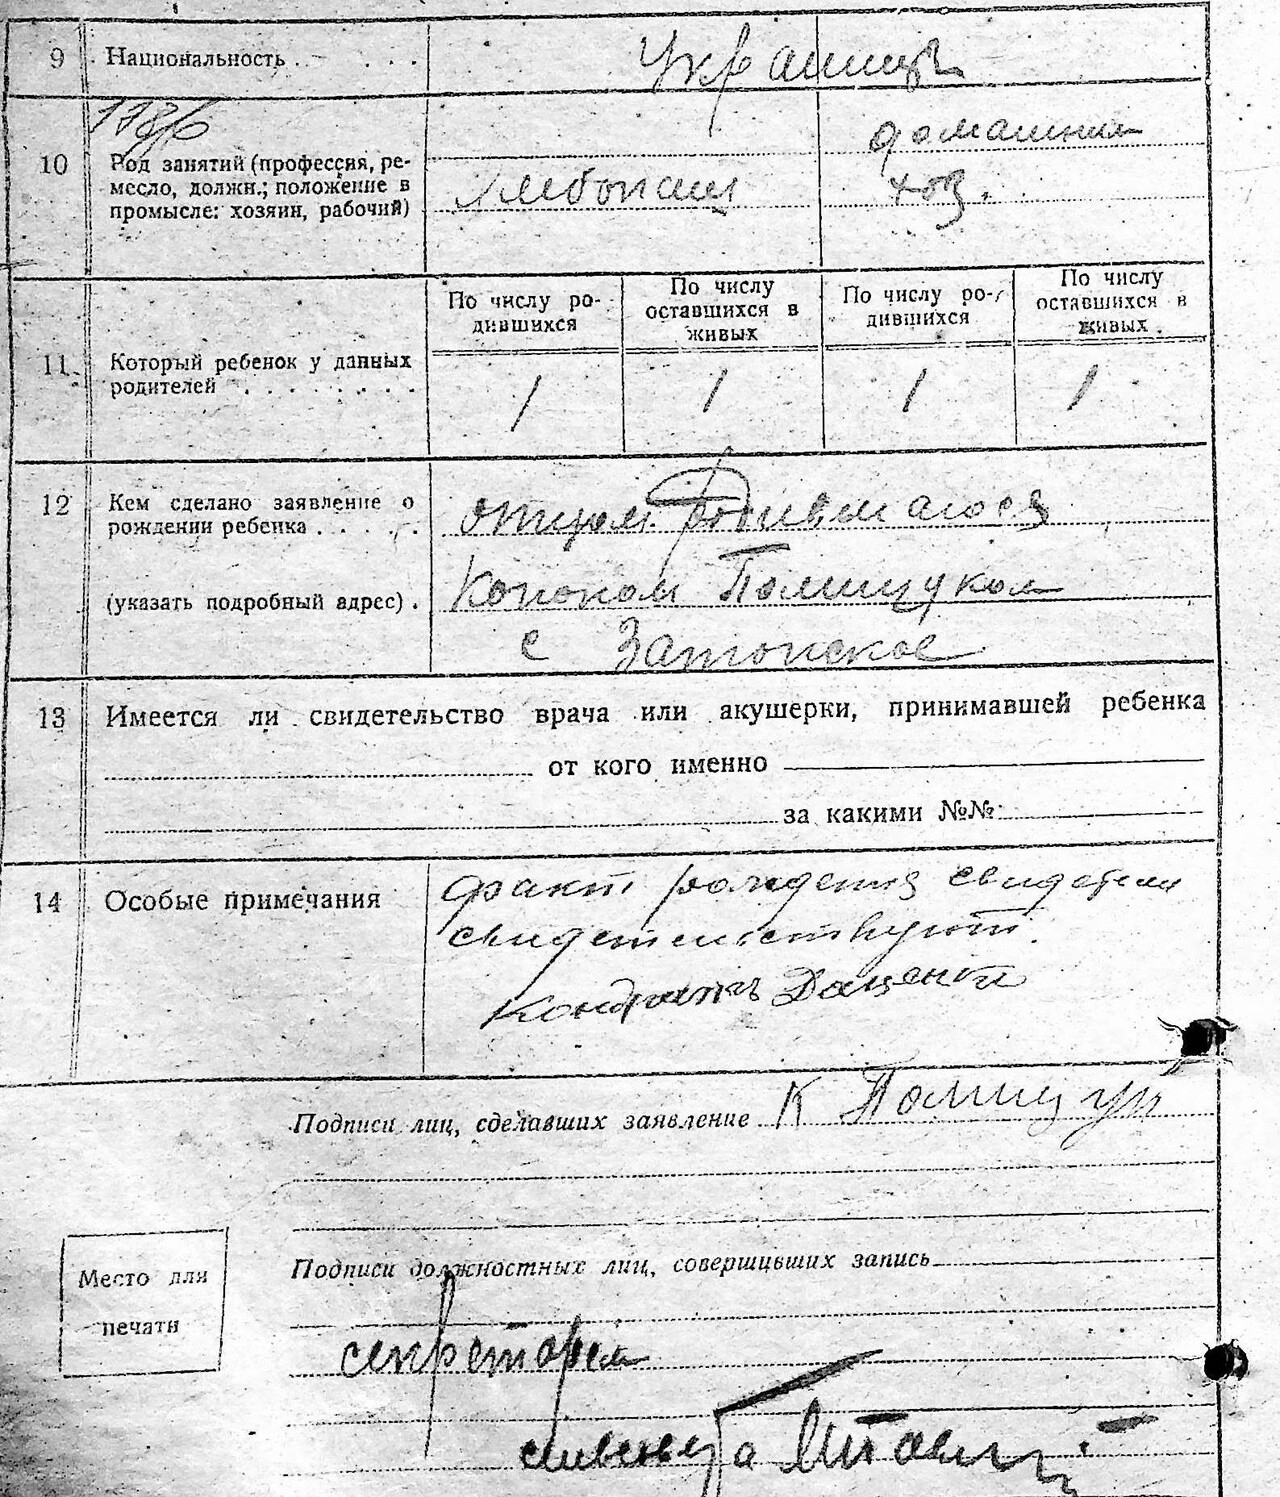 9 Национальность . . . . . Украинцы
10 Род занятий (профессия, ре-
месло, должн.; положение в
промысле: хозяин, рабочий)
Хлебопашц
домашния
хоз.
11 Который ребенок у данных
родителей . . . . . . . .
По числу ро-
дившихся
По числу
оставшихся в
живых
По числу ро-
дившихся
По числу
оставшихся в
живых
1 1 1 1
12 Кем сделано заявление о
рождении ребенка . . . . .
(указать подробный адрес) .
отцом родившагося
Кононом Полищуком
с Затонское
13 Имеется ли свидетельство врача или акушерки, принимавшей ребенка
от кого именно
за какими №№
14 Особые примечания
факт рождения свидетели
свидетельствуют
Кондрать Даценко
Подписи лиц, сделавших заявление К Полищук
Подписи должностных лиц, совершивших запись
Место для
печати
секретарем